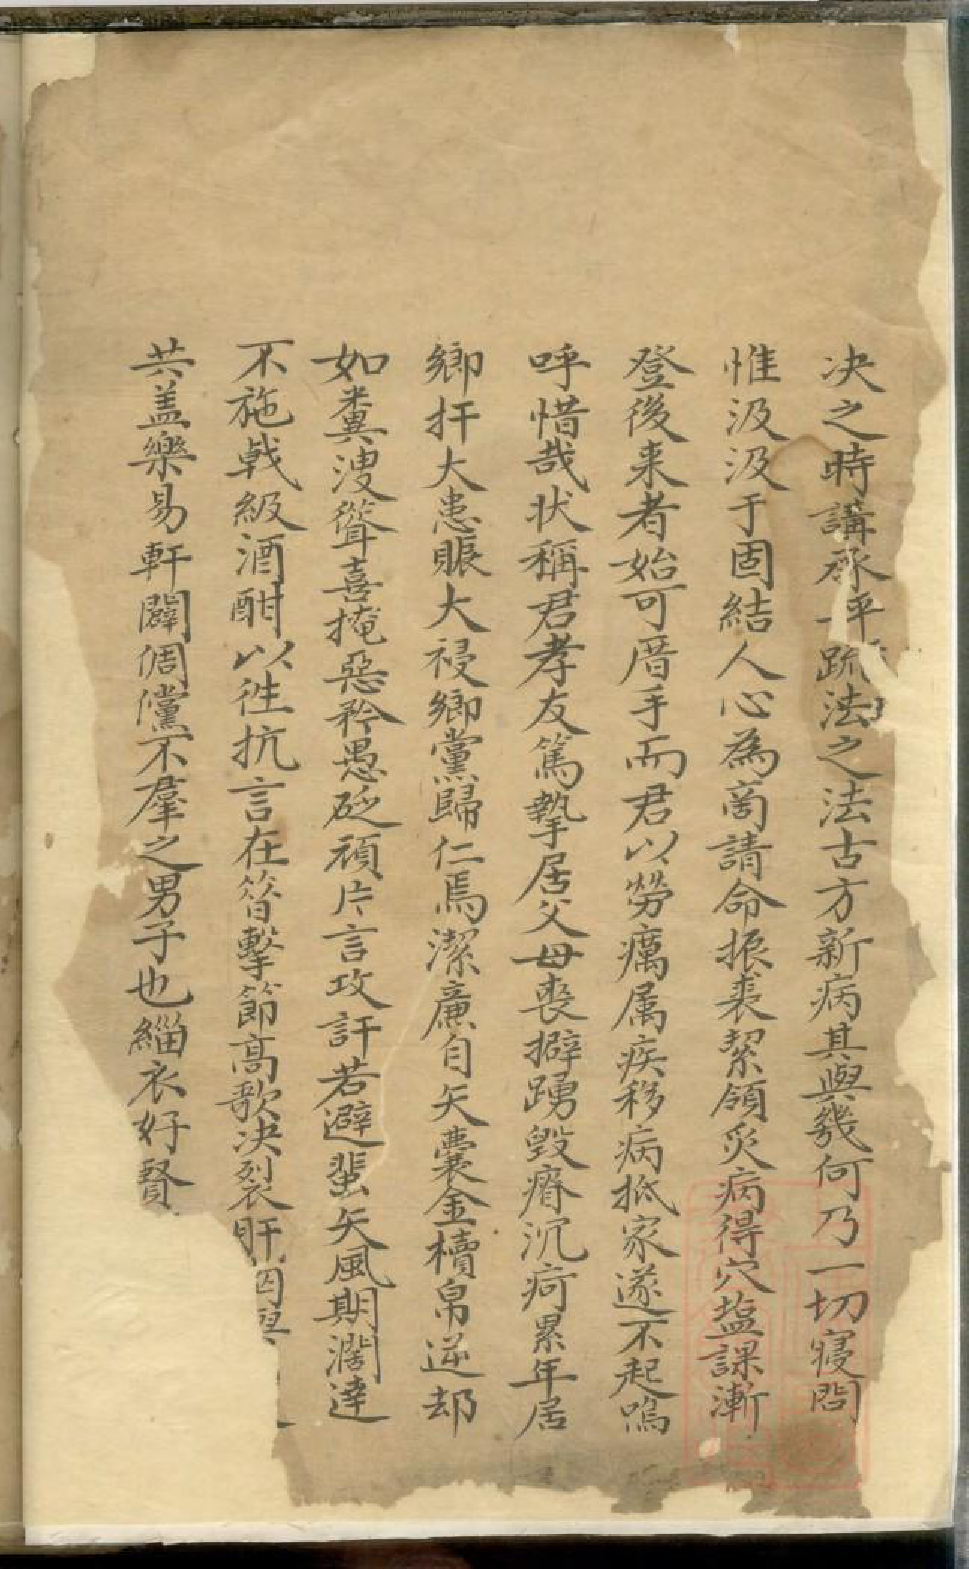 决之時講承平疏法之法古方新病其與幾何乃一切寢閣
惟汲汲于固結人心為啇請命振裘絜領灸病得穴塩課漸
登後来者始可厝手而君以勞癘属疾移病抵家遂不起嗚
呼惜哉状稱君孝友篤摯居父母喪擗踴毀瘠沉疴累年居
鄉扞大患賑大祲鄉黨歸仁焉潔廉自矢囊金櫝帛逆却
如糞溲聳喜掩惡矜愚砭頑片言攻訐若避蜚矢風期濶達
不施戟級酒酣以徃抗言在昔擊節高歌决裂肝
共盖樂易軒闢倜儻不羣之男子也緇衣好賢